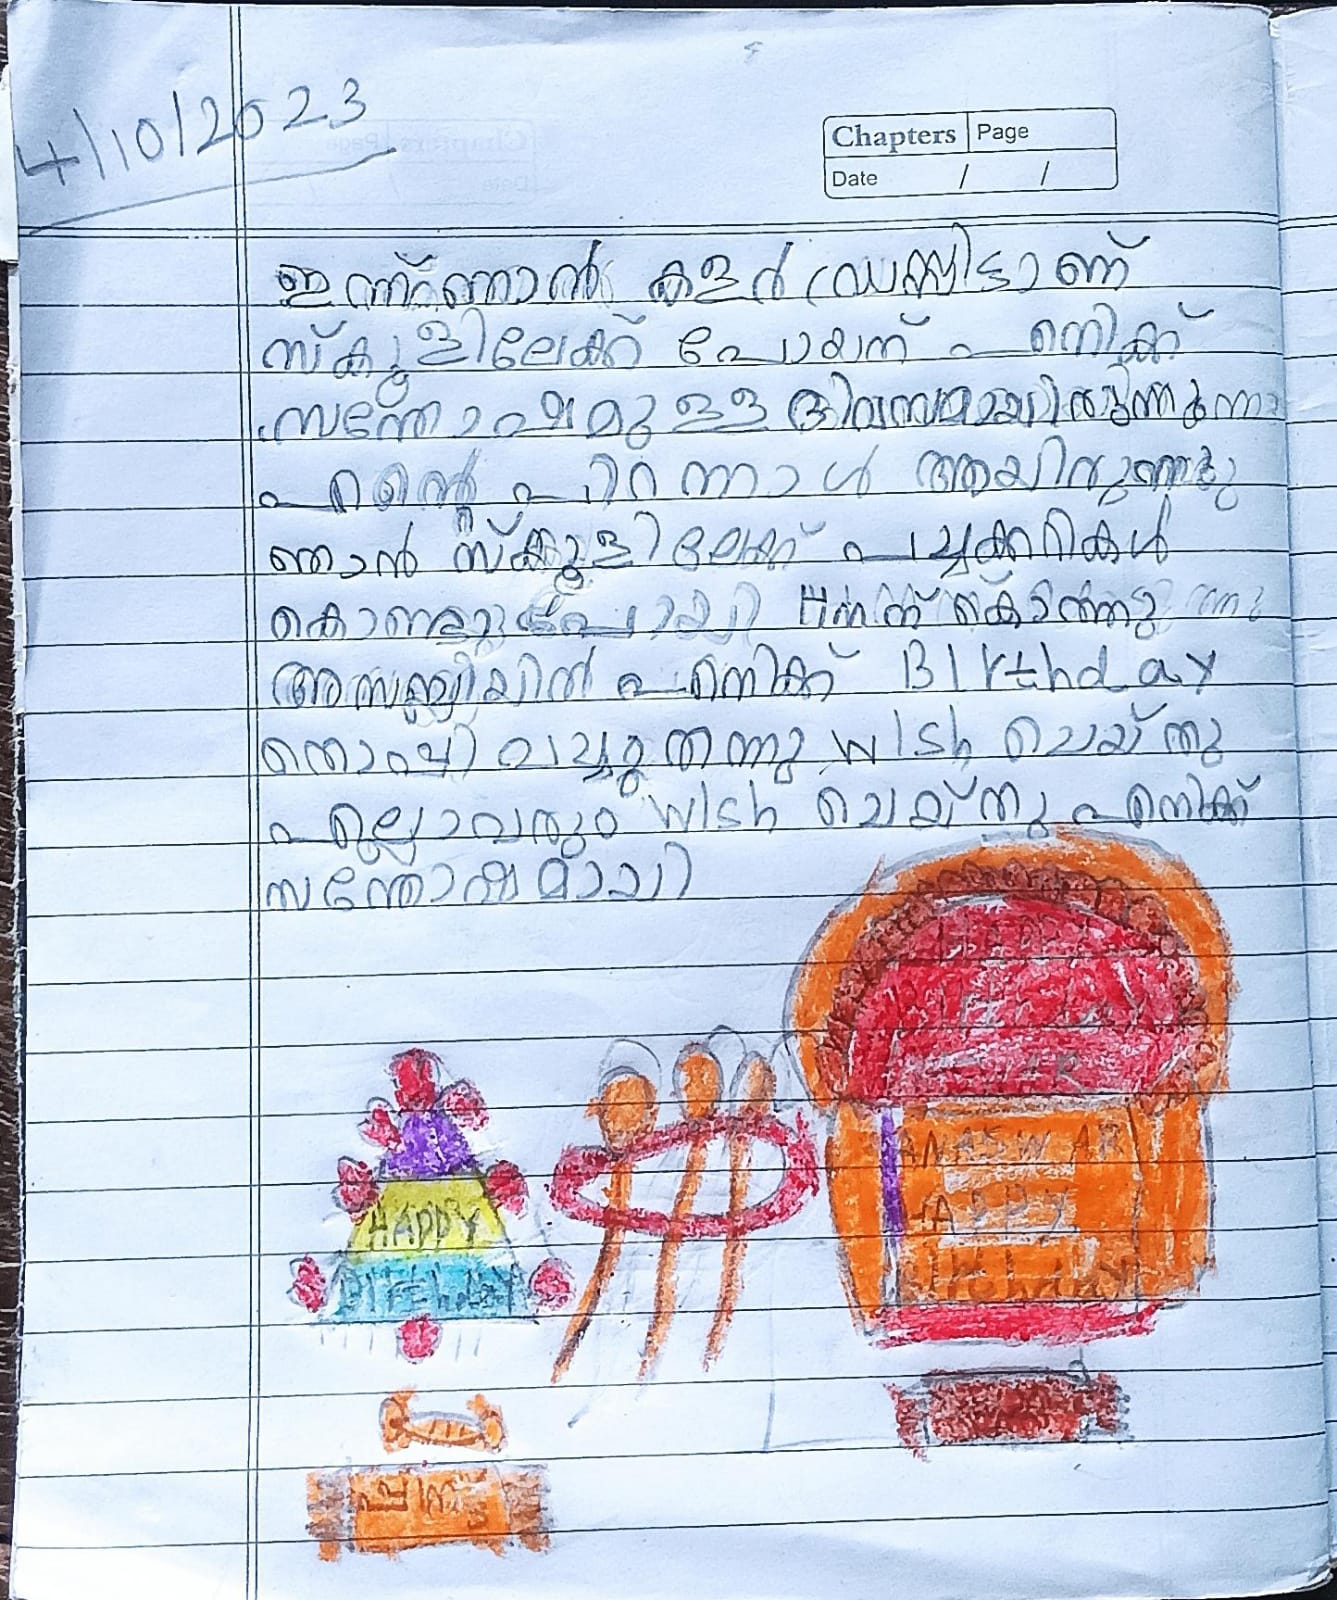 4/10/2023
Chapters Page
Date / /
ഇന്ന് ഞാൻ കളർ ഡ്രസ്സിട്ടാണ്
സ്കൂളിലേക്ക് പോയത് എനിക്ക്
സന്തോഷമുള്ള ദിവസമായിരുന്നു
എന്റെ പിറന്നാൾ ആയിരുന്നു
ഞാൻ സ്ക്കൂളിലേക്ക് പച്ചക്കറികൾ
കൊണ്ടുപോയി Hmന് കൊടുത്തു
അസബ്ലിയിൽ എനിക്ക് BIrthday
തൊപ്പി വച്ചുതന്നു wIsh ചെയ്തു
എല്ലാവരും wIsh ചെയ്തു എനിക്ക്
സന്തോഷമായി
HAPPY
BIrthday
HAPPY
BIrthday
ANASWAR
HAPPY
BIrthday